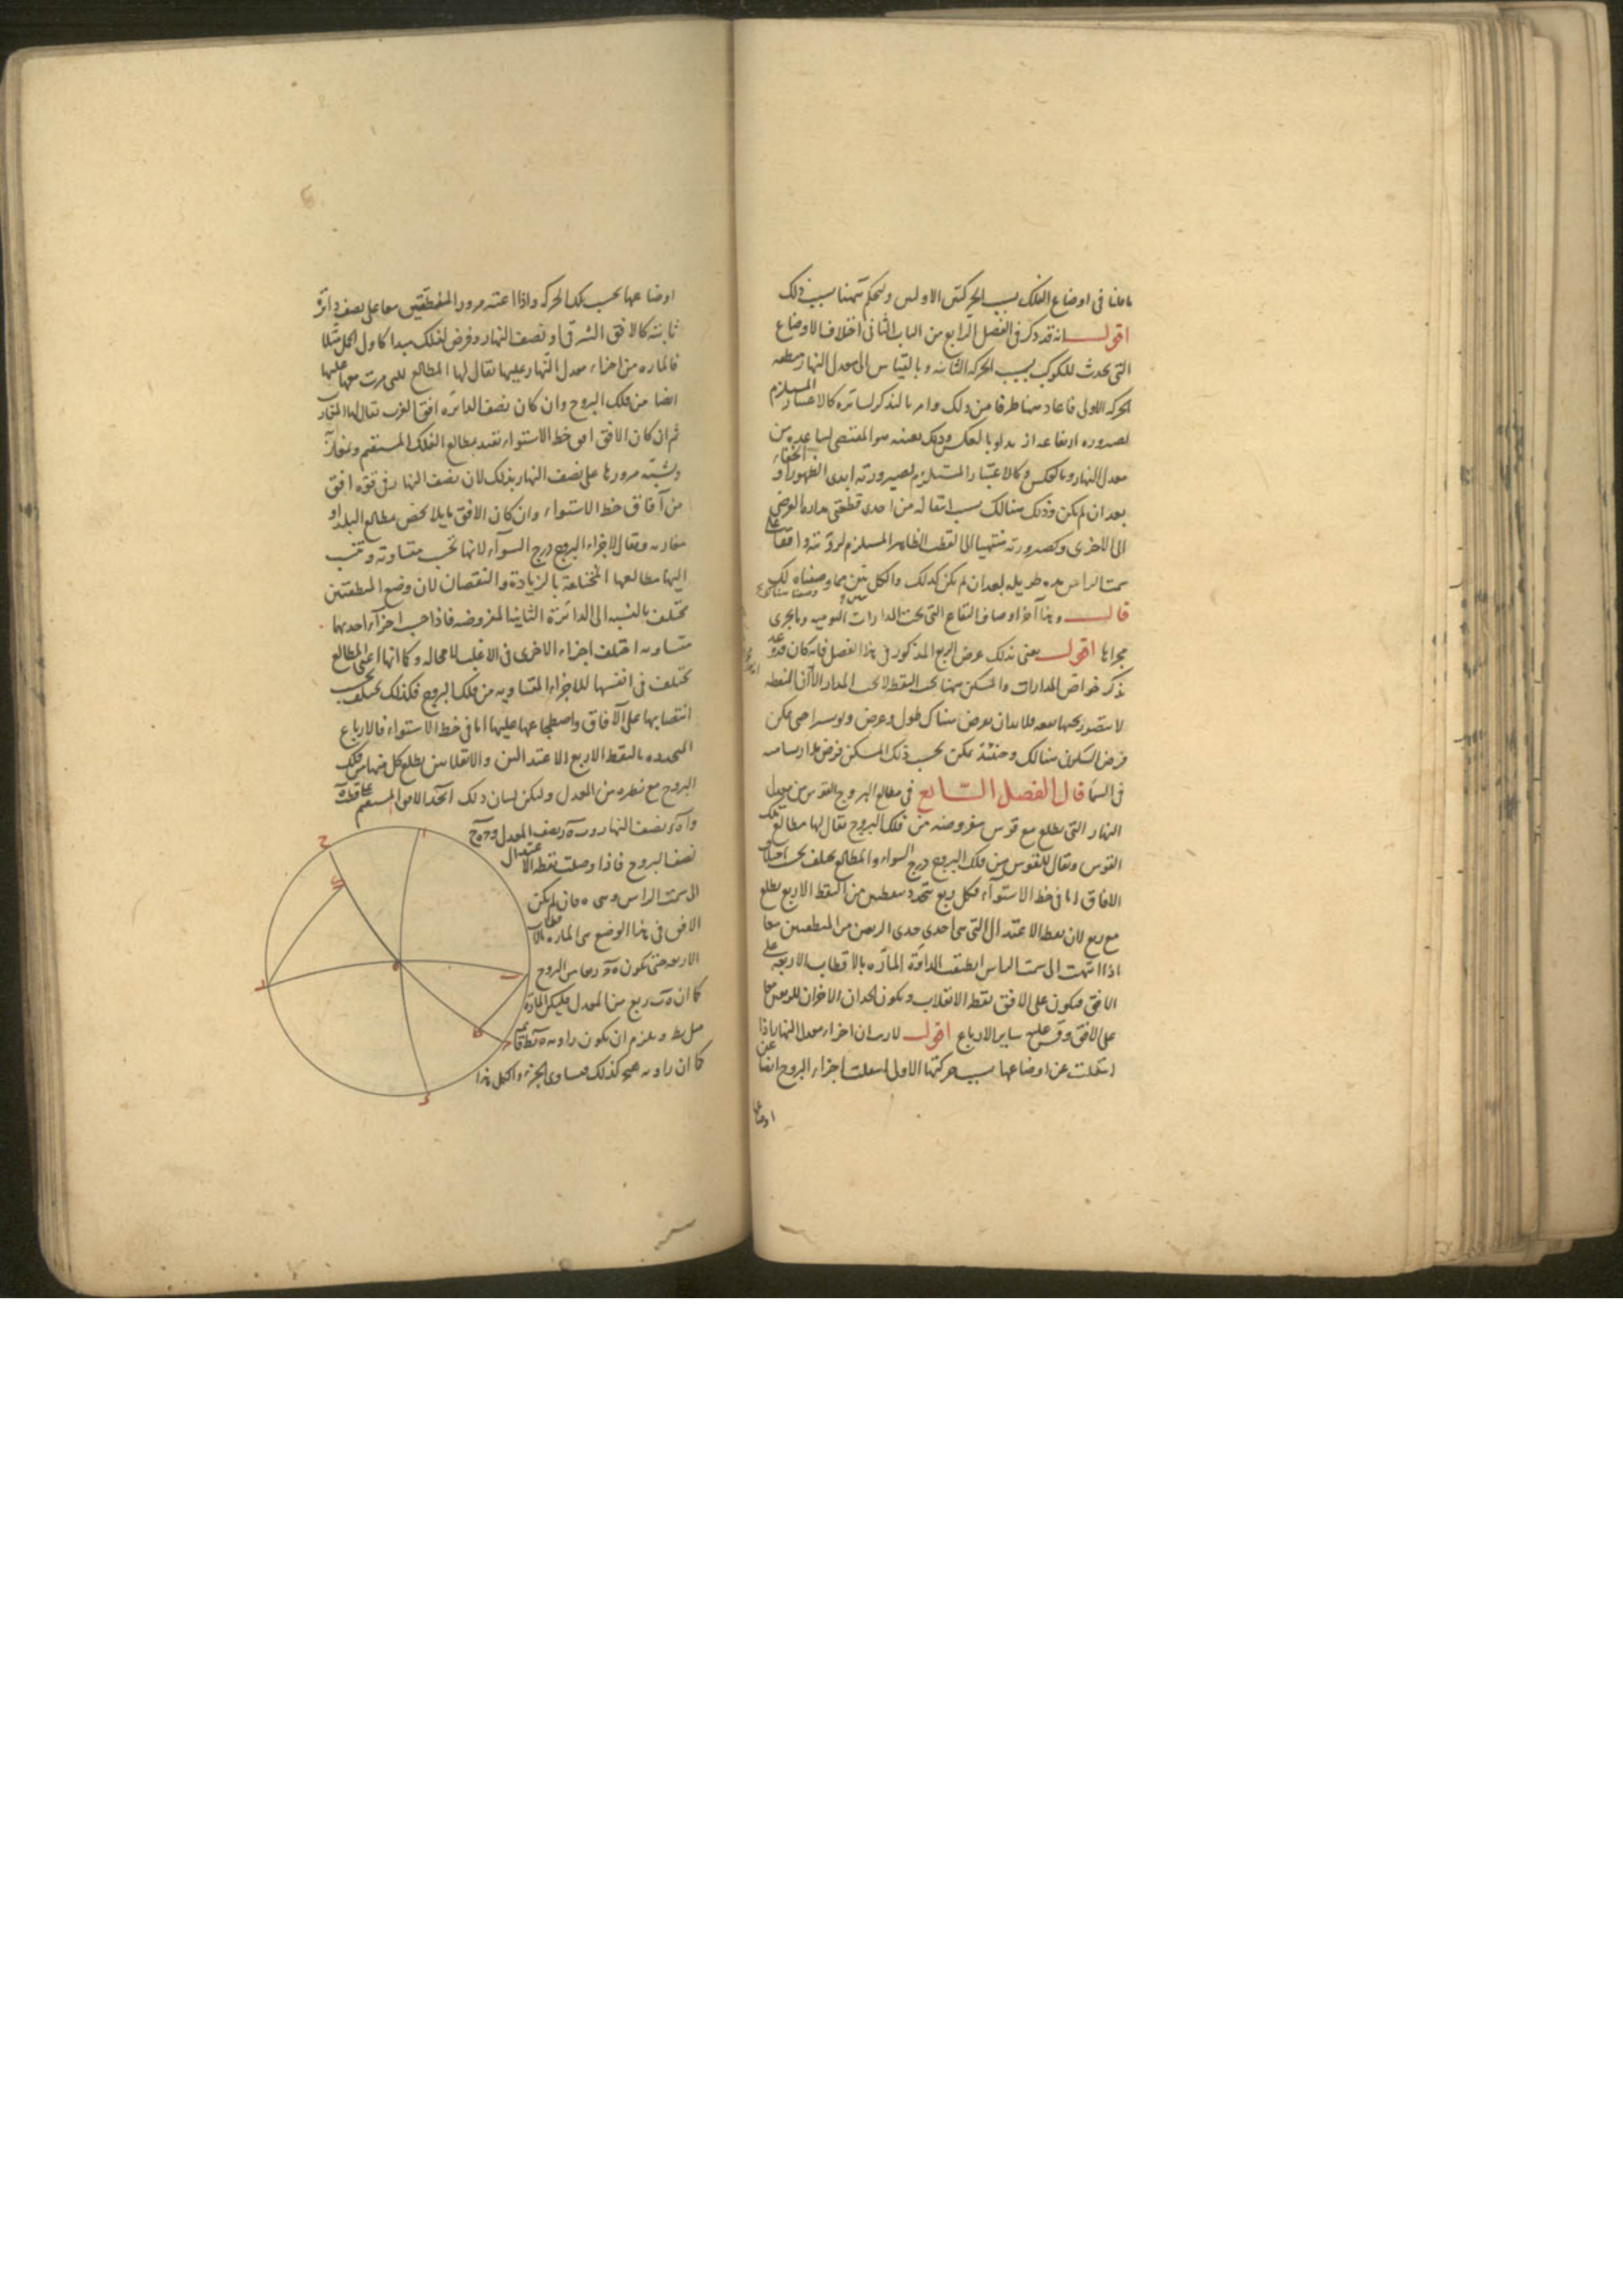 ما قلنا فى اوضاع الفلك بسبب الحركتين الاوليين ولنحكم ههنا بسبب ذلك
اقول انه قد ذكر فى الفصل الرابع من الباب الثانى اختلاف الاوضاع
التى تحدث للكوكب بسبب الحركة الثانية وبالقياس الى معدل النهار
الحركة الاولى فاعاد ههنا طرفا من ذلك وامر بالتذكر لسائره كالاعتبار المستلزم
لصيرورة ارتفاعه ازيد او بالعكس وذلك بعينه هو المقتضى لتباعده من
معدل النهار وبالعكس وكالاعتبار المستلزم لصيرورته ابدى الظهور او الخفاء
بعد ان لم يكن وذلك هنالك بسبب انتقاله من احدى قطعتى مداره العرضى
الى الاخرى وكصيرورته منتهيا الى القطب الظاهر المستلزم لرؤيته واقفا على
سمت الراس مدة طويلة بعد ان لم يكن كذلك والكل تبين مما وصفناه لك
قال وهذا آخر اوصاف البقاع التى تحت المدارات اليومية وما يجرى
مجراها اقول يعنى بذلك عرض الربع المذكور فى هذا الفصل فانه كان قد وعد
بذكر خواص المدارات والمسكن ههنا تحت النقطة لا تحت المدار الا ان النقطة
لا يتصور تحتها بعد فلا بد ان يعرض هناك طول وعرض ولو يسيرا حتى يمكن
فرض السكون هنالك وحينئذ يمكن بحسب ذلك المسكن فرض مدار يسامته
فى السما قال الفصل السابع فى مطالع البروج القوس من معدل
النهار التى تطلع مع قوس مفروضة من فلك البروج يقال لها مطالع تلك
القوس ويقال للقوس من فلك البروج درج السواء والمطالع يختلف بحسب اختلاف
الافاق اما فى خط الاستواء فكل ربع يتحدد بنقطتين من النقط الاربع يطلع
مع ربع لان نقطة الاعتدال التى هى احدى حدى الربعين من المنطقتين معا
اذا انتهت الى سمت الراس انطبقت الدائرة المارة بالاقطاب الاربعة على
الافق فيكون على الافق نقطة الانقلاب ويكون الحدان الاخران للربعين معا
على الافق وقس عليه سائر الارباع اقول لا ريب ان اجزاء معدل النهار اذا
انتقلت عن اوضاعها بسبب حركتها الاولى انتقلت اجزاء البروج ايضا عن
اوضاعها
اوضاعها بحسب تلك الحركة واذا اعتبر مرور المنطقتين معا على نصف دائرة
ثابتة كالافق الشرقى او نصف النهار وفرض لفلك مبدا كاول الحمل مثلا
فالمارة من اجزاء معدل النهار عليها يقال لها المطالع للتى مرت معها عليها
ايضا من فلك البروج وان كان نصف الدائرة افق الغرب يقال لها المغارب
ثم ان كان الافق افق خط الاستواء تقيد بمطالع الفلك المستقيم ومغاربه
ويشبه مرورها على نصف النهار بذلك لان نصف النهار فى قوة افق
من آفاق خط الاستواء وان كان الافق مايلا يخص مطالع البلد او
مغاربه ويقال لاجزاء البروج درج السواء لانها تحسب متساوية وتنسب
اليها مطالعها المختلفة بالزيادة والنقصان لان وضع المنطقتين
يختلف بالنسبة الى الدائرة الثابتة المفروضة فاذا حسب اجزاء احديهما
متساوية اختلف اجزاء الاخرى فى الاغلب لا محالة وكما انها اعنى المطالع
تختلف فى انفسها للاجزاء المتساوية من فلك البروج فكذلك تختلف بحسب
انتصابها على الآفاق واضطجاعها عليها اما فى خط الاستواء فالارباع
المحدودة بالنقط الاربع الاعتدالين والانقلابين يطلع كل منها من فلك
البروج مع نظيره من المعدل وليكن لبيان ذلك ا ب ج د الافق المستقيم على قطب ه
نصف النهار و نصف المعدل
نصف البروج فاذا وصلت نقطة الاعتدال
الى سمت الراس وهى ه فان لم يكن
الافق فى هذا الوضع هى المارة بالاقطاب
الاربعة حتى يكون ربعا من البروج
كما ان ه ب ربع من المعدل فليكن المارة
مثل ب ط ويلزم ان يكون زاوية ه ط ب قائمة
كما ان زاوية كذلك فيساوى الجزء والكل هذا